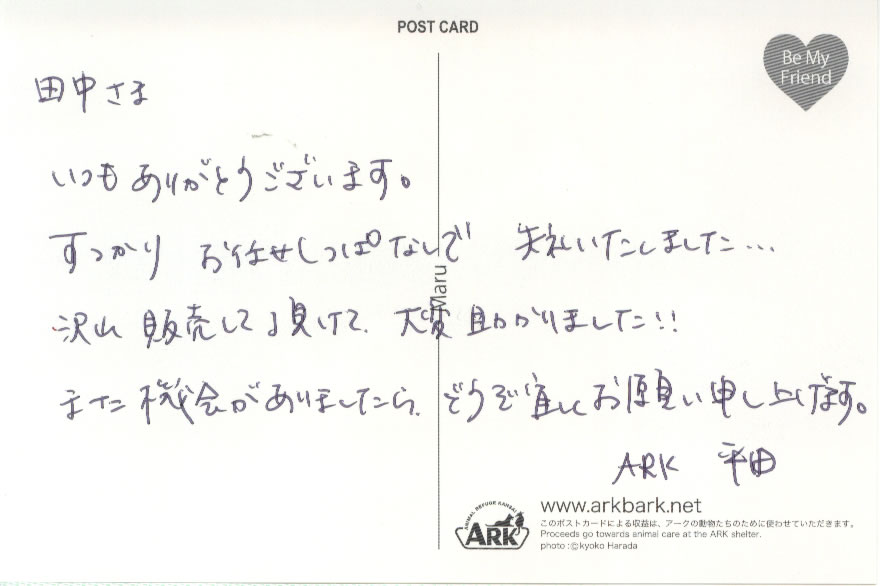 POST CARD
Be My
Friend
田中さま
いつもありがとうございます。
すっかり お任せしっぱなしで 失礼いたしました…
沢山 販売して頂けて、大変助かりました!!
また機会がありましたら、どうぞ宜しくお願い申し上げます。
ARK 平田
Maru
ANIMAL REFUGE KANSAI
ARK
www.arkbark.net
このポストカードによる収益は、アークの動物たちのために使わせていただきます。
Proceeds go towards animal care at the ARK shelter.
photo :©kyoko Harada